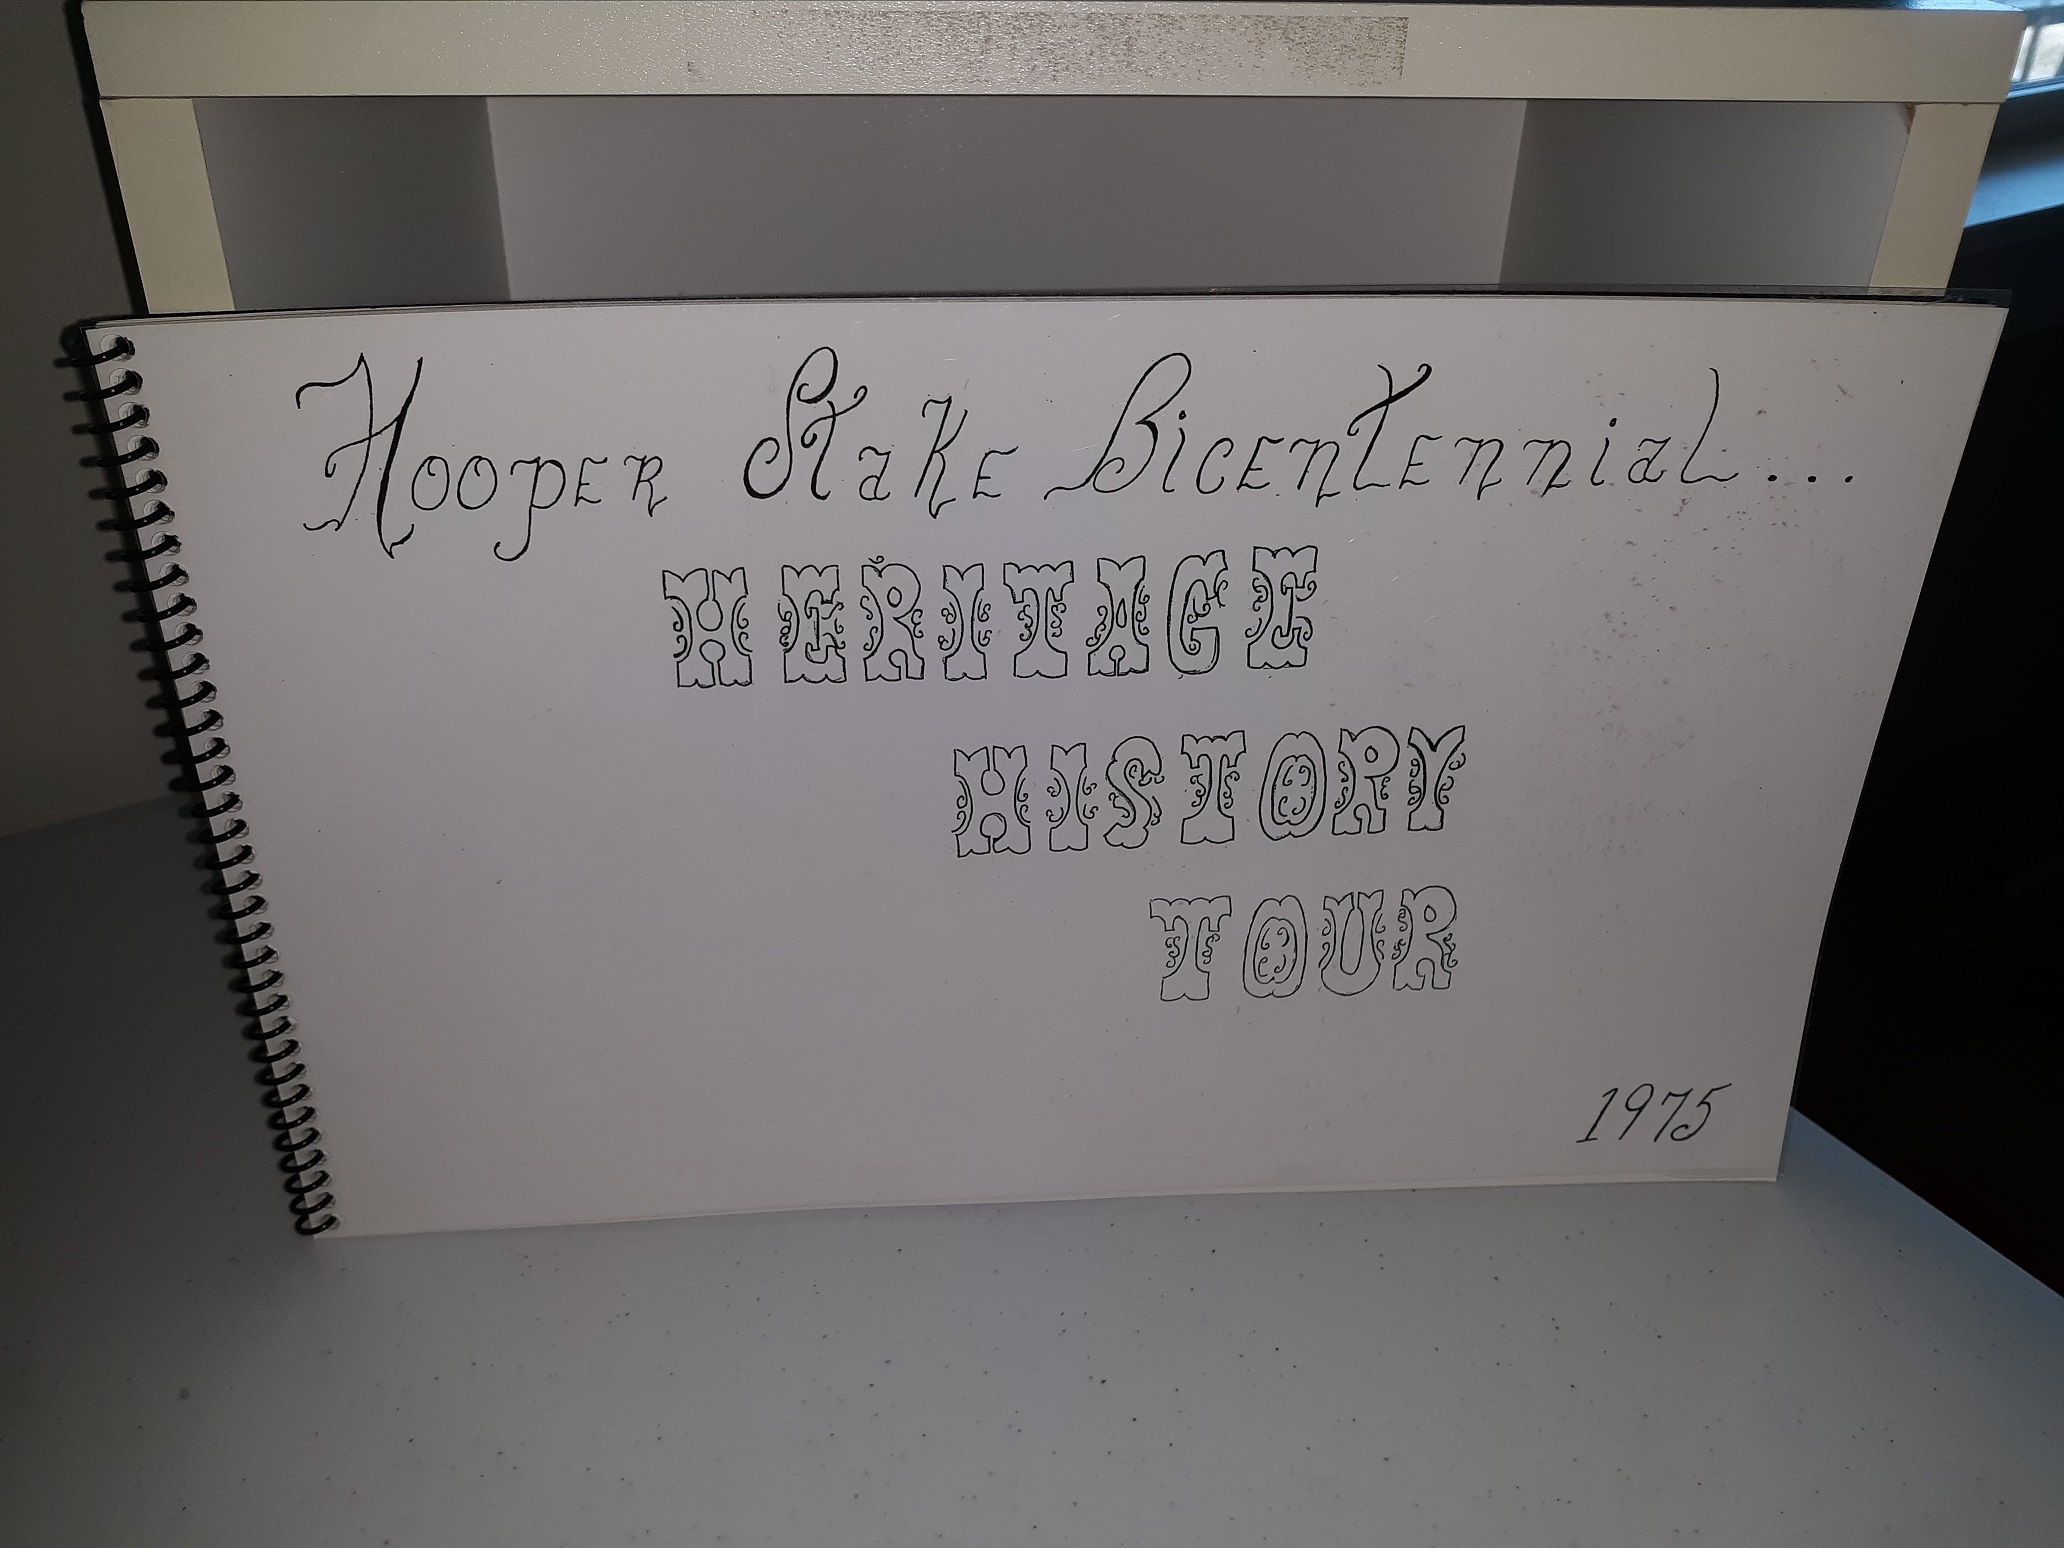 Hooper Stake Bicentennial...
HERITAGE
HISTORY
TOUR
1975